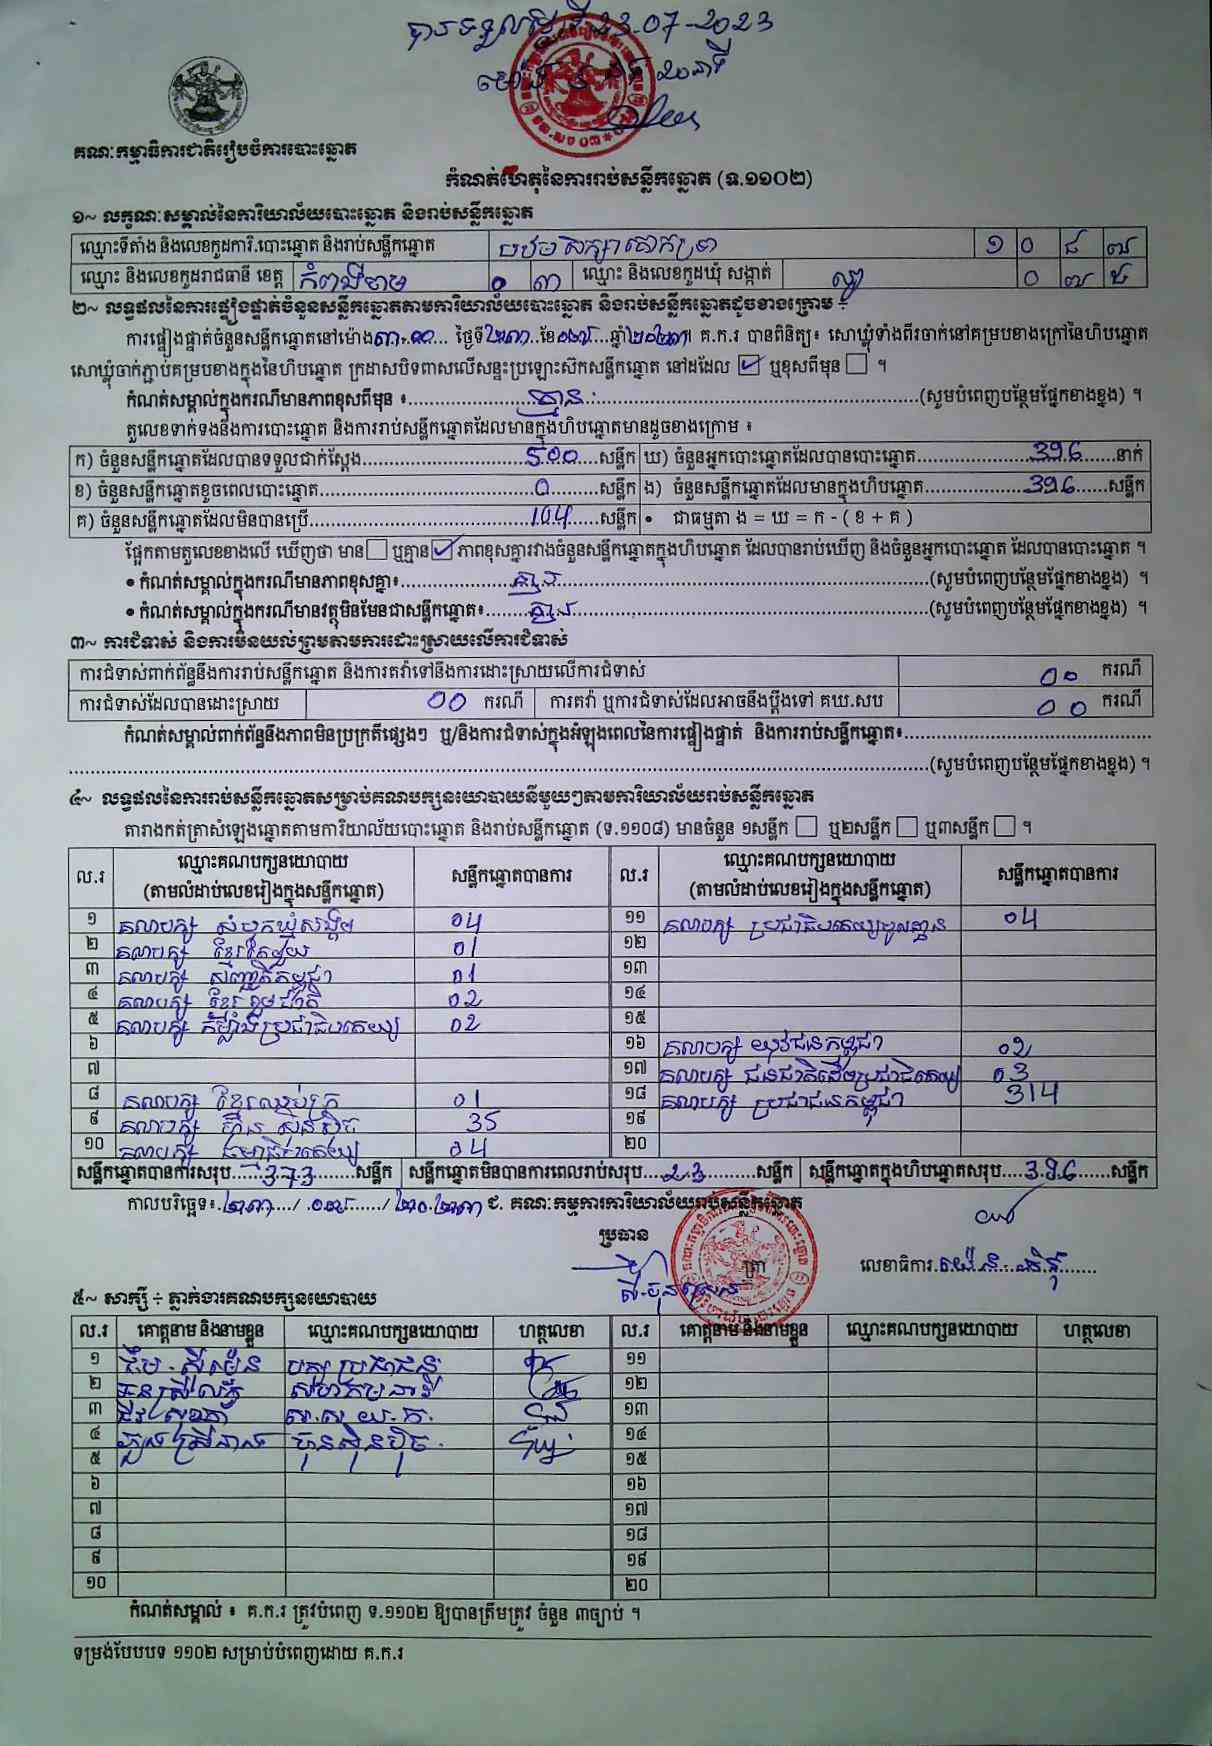 បានទទួលថ្ងៃទី 23-07-2023
ម៉ោង ២០នាទី
គណៈកម្មាធិការជាតិរៀបចំការបោះឆ្នោត
កំណត់ហេតុនៃការរាប់សន្លឹកឆ្នោត (ទ.១១០២)
១~ លក្ខណៈសម្គាល់នៃការិយាល័យបោះឆ្នោត និងរាប់សន្លឹកឆ្នោត
ឈ្មោះទីតាំង និងលេខកូដការិ.បោះឆ្នោត និងរាប់សន្លឹកឆ្នោត បឋមសិក្សាគោកព្រីង ១ ០ ៨ ៧
ឈ្មោះ និងលេខកូដរាជធានី ខេត្ត កំពង់ចាម ០ ៣ ឈ្មោះ និងលេខកូដឃុំ សង្កាត់ ល្វា ០ ៧ ៥
២~ លទ្ធផលនៃការផ្ទៀងផ្ទាត់ចំនួនសន្លឹកឆ្នោតតាមការិយាល័យបោះឆ្នោត និងរាប់សន្លឹកឆ្នោតដូចខាងក្រោម ÷
ការផ្ទៀងផ្ទាត់ចំនួនសន្លឹកឆ្នោតនៅម៉ោង ៣:00... ថ្ងៃទី ២៣...ខែ ០៧...ឆ្នាំ ២០២៣ គ.ក.រ បានពិនិត្យ៖ សោឃ្លុំទាំងពីរចាក់នៅគម្របខាងក្រៅនៃហិបឆ្នោត
សោឃ្លុំចាក់ភ្ជាប់គម្របខាងក្នុងនៃហិបឆ្នោត ក្រដាសបិទពាសលើសន្ទះប្រឡោះស៊កសន្លឹកឆ្នោត នៅដដែល ☑ ឬខុសពីមុន ☐ ។
កំណត់សម្គាល់ក្នុងករណីមានភាពខុសពីមុន ៖.......... គ្មាន ..........(សូមបំពេញបន្ថែមផ្នែកខាងខ្នង) ។
តួលេខទាក់ទងនឹងការបោះឆ្នោត និងការរាប់សន្លឹកឆ្នោតដែលមានក្នុងហិបឆ្នោតមានដូចខាងក្រោម ៖
ក) ចំនួនសន្លឹកឆ្នោតដែលបានទទួលជាក់ស្ដែង.......... 500 ....សន្លឹក ឃ) ចំនួនអ្នកបោះឆ្នោតដែលបានបោះឆ្នោត.......... 396 ......នាក់
ខ) ចំនួនសន្លឹកឆ្នោតខូចពេលបោះឆ្នោត.......... 0 ......សន្លឹក ង) ចំនួនសន្លឹកឆ្នោតដែលមានក្នុងហិបឆ្នោត.......... 396 ......សន្លឹក
គ) ចំនួនសន្លឹកឆ្នោតដែលមិនបានប្រើ.......... 104 ......សន្លឹក • ជាធម្មតា ង = ឃ = ក - ( ខ + គ )
ផ្អែកតាមតួលេខខាងលើ ឃើញថា មាន ☐ ឬគ្មាន ☑ ភាពខុសគ្នារវាងចំនួនសន្លឹកឆ្នោតក្នុងហិបឆ្នោត ដែលបានរាប់ឃើញ និងចំនួនអ្នកបោះឆ្នោត ដែលបានបោះឆ្នោត ។
• កំណត់សម្គាល់ក្នុងករណីមានភាពខុសគ្នា៖.......... គ្មាន ..........(សូមបំពេញបន្ថែមផ្នែកខាងខ្នង) ។
• កំណត់សម្គាល់ក្នុងករណីមានវត្ថុមិនមែនជាសន្លឹកឆ្នោត៖.......... គ្មាន ..........(សូមបំពេញបន្ថែមផ្នែកខាងខ្នង) ។
៣~ ការជំទាស់ និងការមិនយល់ព្រមតាមការដោះស្រាយលើការជំទាស់
ការជំទាស់ពាក់ព័ន្ធនឹងការរាប់សន្លឹកឆ្នោត និងការតវ៉ាទៅនឹងការដោះស្រាយលើការជំទាស់ 00 ករណី
ការជំទាស់ដែលបានដោះស្រាយ 00 ករណី ការតវ៉ា ឬការជំទាស់ដែលអាចនឹងប្ដឹងទៅ គឃ.សប 00 ករណី
កំណត់សម្គាល់ពាក់ព័ន្ធនឹងភាពមិនប្រក្រតីផ្សេងៗ ឬ/និងការជំទាស់ក្នុងអំឡុងពេលនៃការផ្ទៀងផ្ទាត់ និងការរាប់សន្លឹកឆ្នោត៖..........
..........(សូមបំពេញបន្ថែមផ្នែកខាងខ្នង) ។
៤~ លទ្ធផលនៃការរាប់សន្លឹកឆ្នោតសម្រាប់គណបក្សនយោបាយនីមួយៗតាមការិយាល័យរាប់សន្លឹកឆ្នោត
តារាងកត់ត្រាសំឡេងឆ្នោតតាមការិយាល័យបោះឆ្នោត និងរាប់សន្លឹកឆ្នោត (ទ.១១០៨) មានចំនួន ១សន្លឹក ☐ ឬ២សន្លឹក ☐ ឬ៣សន្លឹក ☐ ។
ល.រ ឈ្មោះគណបក្សនយោបាយ (តាមលំដាប់លេខរៀងក្នុងសន្លឹកឆ្នោត) សន្លឹកឆ្នោតបានការ ល.រ ឈ្មោះគណបក្សនយោបាយ (តាមលំដាប់លេខរៀងក្នុងសន្លឹកឆ្នោត) សន្លឹកឆ្នោតបានការ
១ គណបក្ស សំបុកឃ្មុំសង្គម 04 ១១ គណបក្ស ប្រជាធិបតេយ្យមូលដ្ឋាន 04
២ គណបក្ស ខ្មែរតែមួយ 01 ១២
៣ គណបក្ស សញ្ជាតិកម្ពុជា 01 ១៣
៤ គណបក្ស ខ្មែររួបរួមជាតិ 02 ១៤
៥ គណបក្ស កម្លាំងប្រជាធិបតេយ្យ 02 ១៥
៦ ១៦ គណបក្ស យុវជនកម្ពុជា 02
៧ ១៧ គណបក្ស ជនជាតិដើមប្រជាធិបតេយ្យ 03
៨ គណបក្ស ខ្មែរឈប់ក្រ 01 ១៨ គណបក្ស ប្រជាជនកម្ពុជា 314
៩ គណបក្ស ហ៊្វុនស៊ិនប៉ិច 35 ១៩
១០ គណបក្ស ធម្មាធិបតេយ្យ 04 ២០
សន្លឹកឆ្នោតបានការសរុប.... 373 ......សន្លឹក សន្លឹកឆ្នោតមិនបានការពេលរាប់សរុប.... 23 ......សន្លឹក សន្លឹកឆ្នោតក្នុងហិបឆ្នោតសរុប.... 396 ......សន្លឹក
កាលបរិច្ឆេទ៖ ២៣ / ០៧ / ២០២៣ ជ. គណៈកម្មការការិយាល័យរាប់សន្លឹកឆ្នោត
ប្រធាន
ត្រា
លេខាធិការ
៥~ សាក្សី ÷ ភ្នាក់ងារគណបក្សនយោបាយ
ល.រ គោត្តនាម និងនាមខ្លួន ឈ្មោះគណបក្សនយោបាយ ហត្ថលេខា ល.រ គោត្តនាម និងនាមខ្លួន ឈ្មោះគណបក្សនយោបាយ ហត្ថលេខា
១ បក្សប្រជាជន ១១
២ ១២
៣ ស.ស.យ.ក. ១៣
៤ ហ៊្វុនស៊ិនប៉ិច ១៤
៥ ១៥
៦ ១៦
៧ ១៧
៨ ១៨
៩ ១៩
១០ ២០
កំណត់សម្គាល់ ៖ គ.ក.រ ត្រូវបំពេញ ទ.១១០២ ឱ្យបានត្រឹមត្រូវ ចំនួន ៣ច្បាប់ ។
ទម្រង់បែបបទ ១១០២ សម្រាប់បំពេញដោយ គ.ក.រ